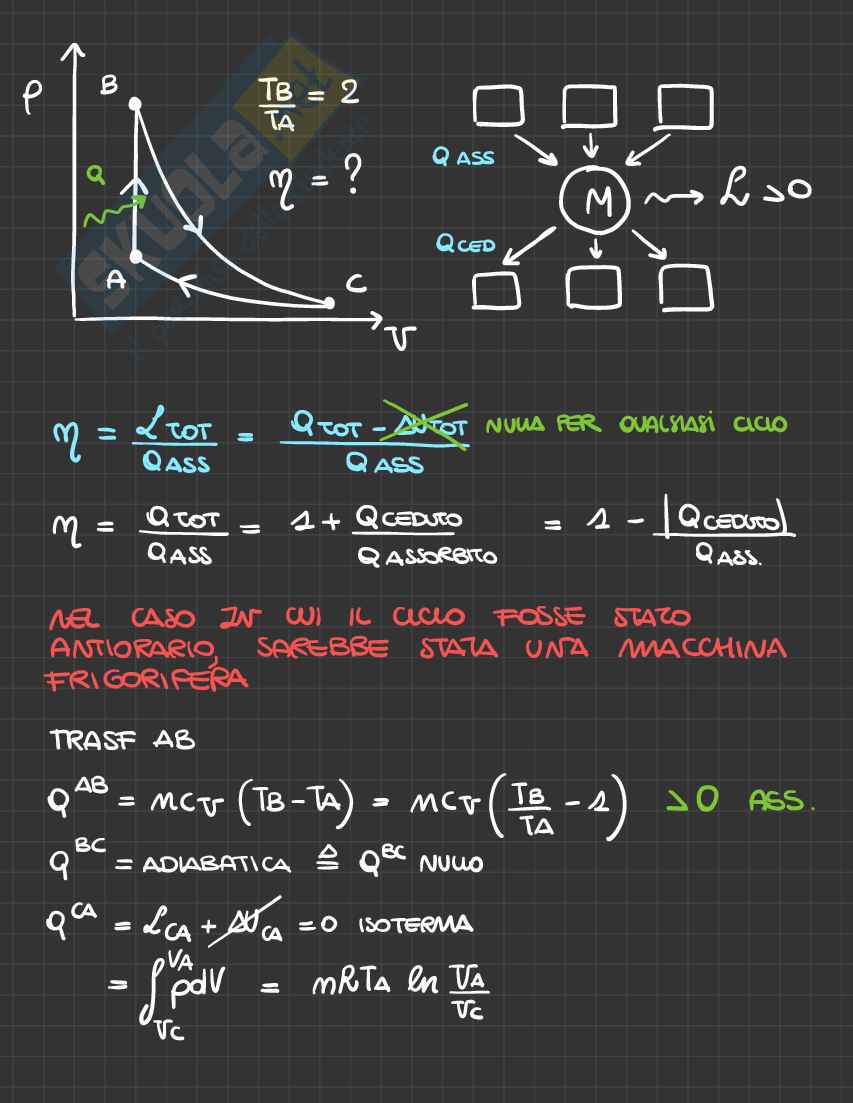 p
B
TB/TA = 2
Q
η = ?
A
C
V
Q ASS
M
L >0
QCED
η = L TOT / Q ASS = Q TOT - ΔU TOT / Q ASS NULLA PER QUALSIASI CICLO
η = Q TOT / Q ASS = 1 + Q CEDUTO / Q ASSORBITO = 1 - |Q CEDUTO| / Q ASS.
NEL CASO IN CUI IL CICLO FOSSE STATO
ANTIORARIO, SAREBBE STATA UNA MACCHINA
FRIGORIFERA
TRASF AB
Q^AB = MCV (TB-TA) = MCV (TB/TA - 1) >0 ASS.
Q^BC = ADIABATICA ≜ Q^BC NULLO
Q^CA = L CA + ΔU CA = 0 ISOTERMA
= ∫_VC^VA pdV = nRTA ln VA/VC
SKUOLA.net